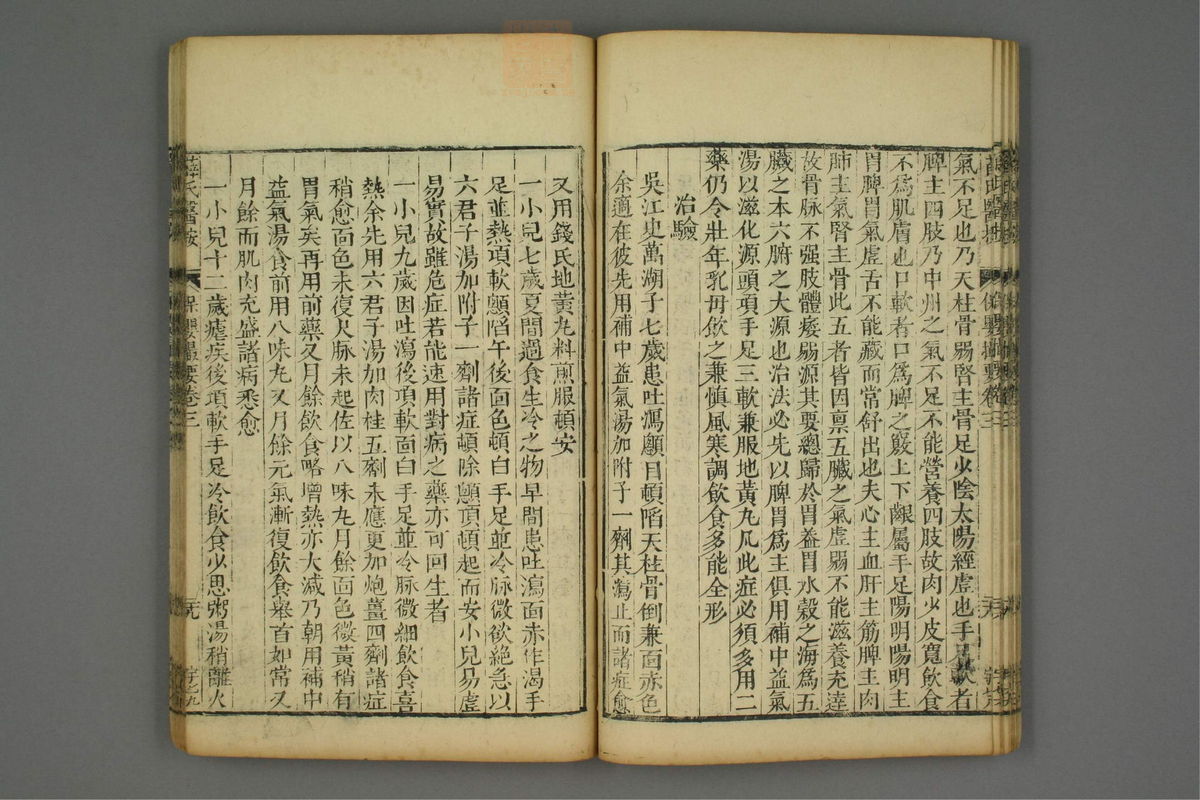 氣不足也乃天柱骨弱腎主骨足少陰太陽經虛也手足軟者
脾主四肢乃中州之氣不足不能營養四肢故肉少皮寬飲食
不爲肌膚也口軟者口爲脾之竅上下齦屬手足陽明陽明主
胃脾胃氣虛舌不能藏而常舒出也夫心主血肝主筋脾主肉
肺主氣腎主骨此五者皆因禀五臟之氣虛弱不能滋養充達
故骨脉不强肢體痿弱源其要總歸於胃葢胃水穀之海爲五
臟之本六腑之大源也治法必先以脾胃爲主俱用補中益氣
湯以滋化源頭項手足三軟兼服地黃丸凡此症必須多用二
藥仍令壯年乳母飲之兼愼風寒調飲食多能全形
治驗
吳江史萬湖子七歲患吐瀉顖目頓陷天柱骨倒兼面赤色
余適在彼先用補中益氣湯加附子一劑其瀉止而諸症愈
又用錢氏地黃丸料煎服頓安
一小兒七歲夏間過食生冷之物早間患吐瀉面赤作渴手
足並熱項軟顖陷午後面色頓白手足並冷脉微欲絶急以
六君子湯加附子一劑諸症頓除顖頂頓起而安小兒易虛
易實故雖危症若能速用對病之藥亦可回生者
一小兒九歲因吐瀉後項軟面白手足並冷脉微細飲食喜
熱余先用六君子湯加肉桂五劑未應更加炮薑四劑諸症
稍愈面色未復尺脉未起佐以八味丸月餘面色微黃稍有
胃氣矣再用前藥又月餘飲食略增熱亦大減乃朝用補中
益氣湯食前用八味丸又月餘元氣漸復飲食舉首如常又
月餘而肌肉充盛諸病悉愈
一小兒十二歲瘧疾後項軟手足冷飲食少思粥湯稍離火
薛氏醫按
保嬰撮要卷三